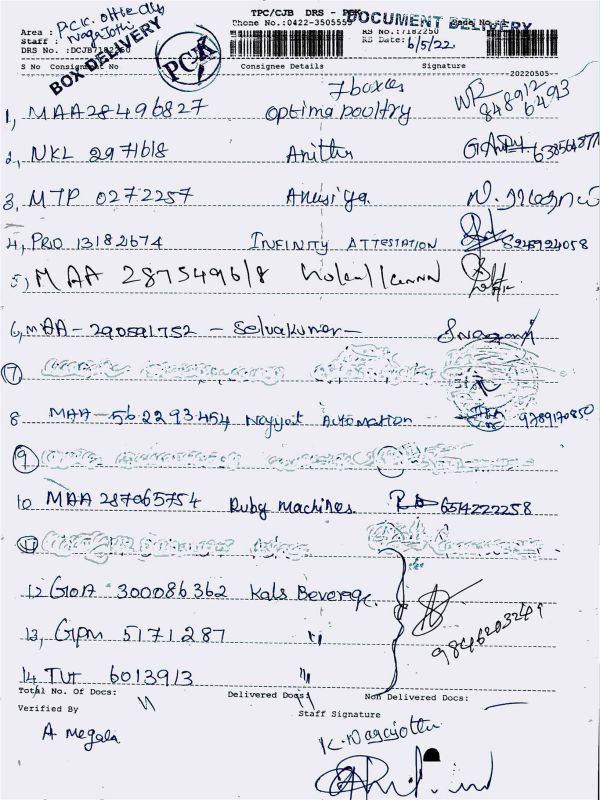 TPC/CJB DRS - PCK
Phone No.:0422-3505555
DOCUMENT DELIVERY
Area : P.C.K. office
Staff : Nagajothi
RS No.:17182250
DRS No. :DCJB17182250
RS Date: 6/5/22
BOX DELIVERY
PCK
S No Consignment No Consignee Details Signature
20220505-
7 boxes
1, MAA28496827 Optima poultry 848912 6493
2, NKL 2971618 Anitha
3, MTP 0272257 Anusiya
4, PRO 13182674 INFINITY ATTESTATION
5) MAA 287549618
6, MAA - 290591752 - Selvakumar
7
8 MAA - 562293454 Nayyat Automation 9789170850
9
10 MAA 287065754 Ruby Machines 6514222258
11
12 GOA 300086362 Kals Beverage.
9846203249
13, GPM 5171287 "
14 TUT 6013913 "
Total No. Of Docs: 11 Delivered Docs: 11 Non Delivered Docs:
Verified By Staff Signature
A Megala K. Nagajothi